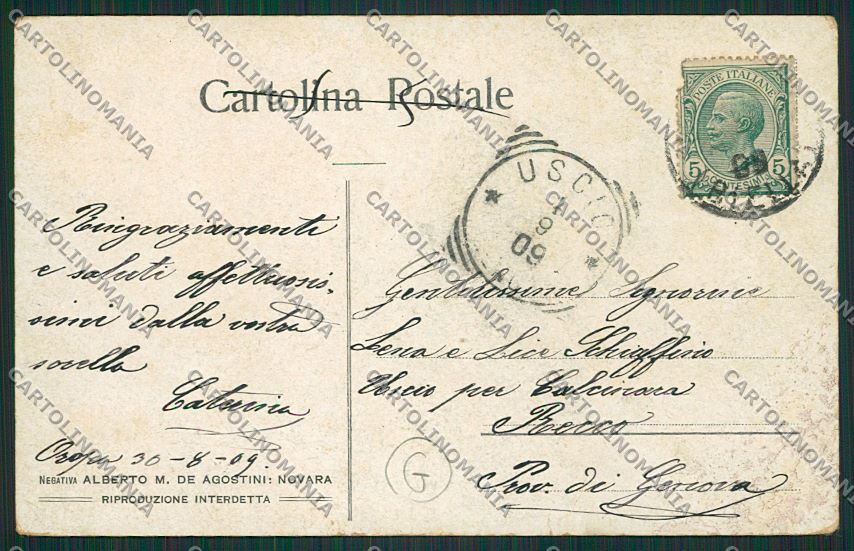 Cartolina Postale
POSTE ITALIANE
5 CENTESIMI 5
USCIO
09
Ringraziamenti
e saluti affettuosis-
simi dalla vostra
sorella
Caterina
Oropa 30-8-09.
NEGATIVA ALBERTO M. DE AGOSTINI: NOVARA
RIPRODUZIONE INTERDETTA
Gentilissime Signorine
Lena e Lice Schiaffino
Uscio per Calcinara
Recco
Prov. di Genova
G
CARTOLINOMANIA